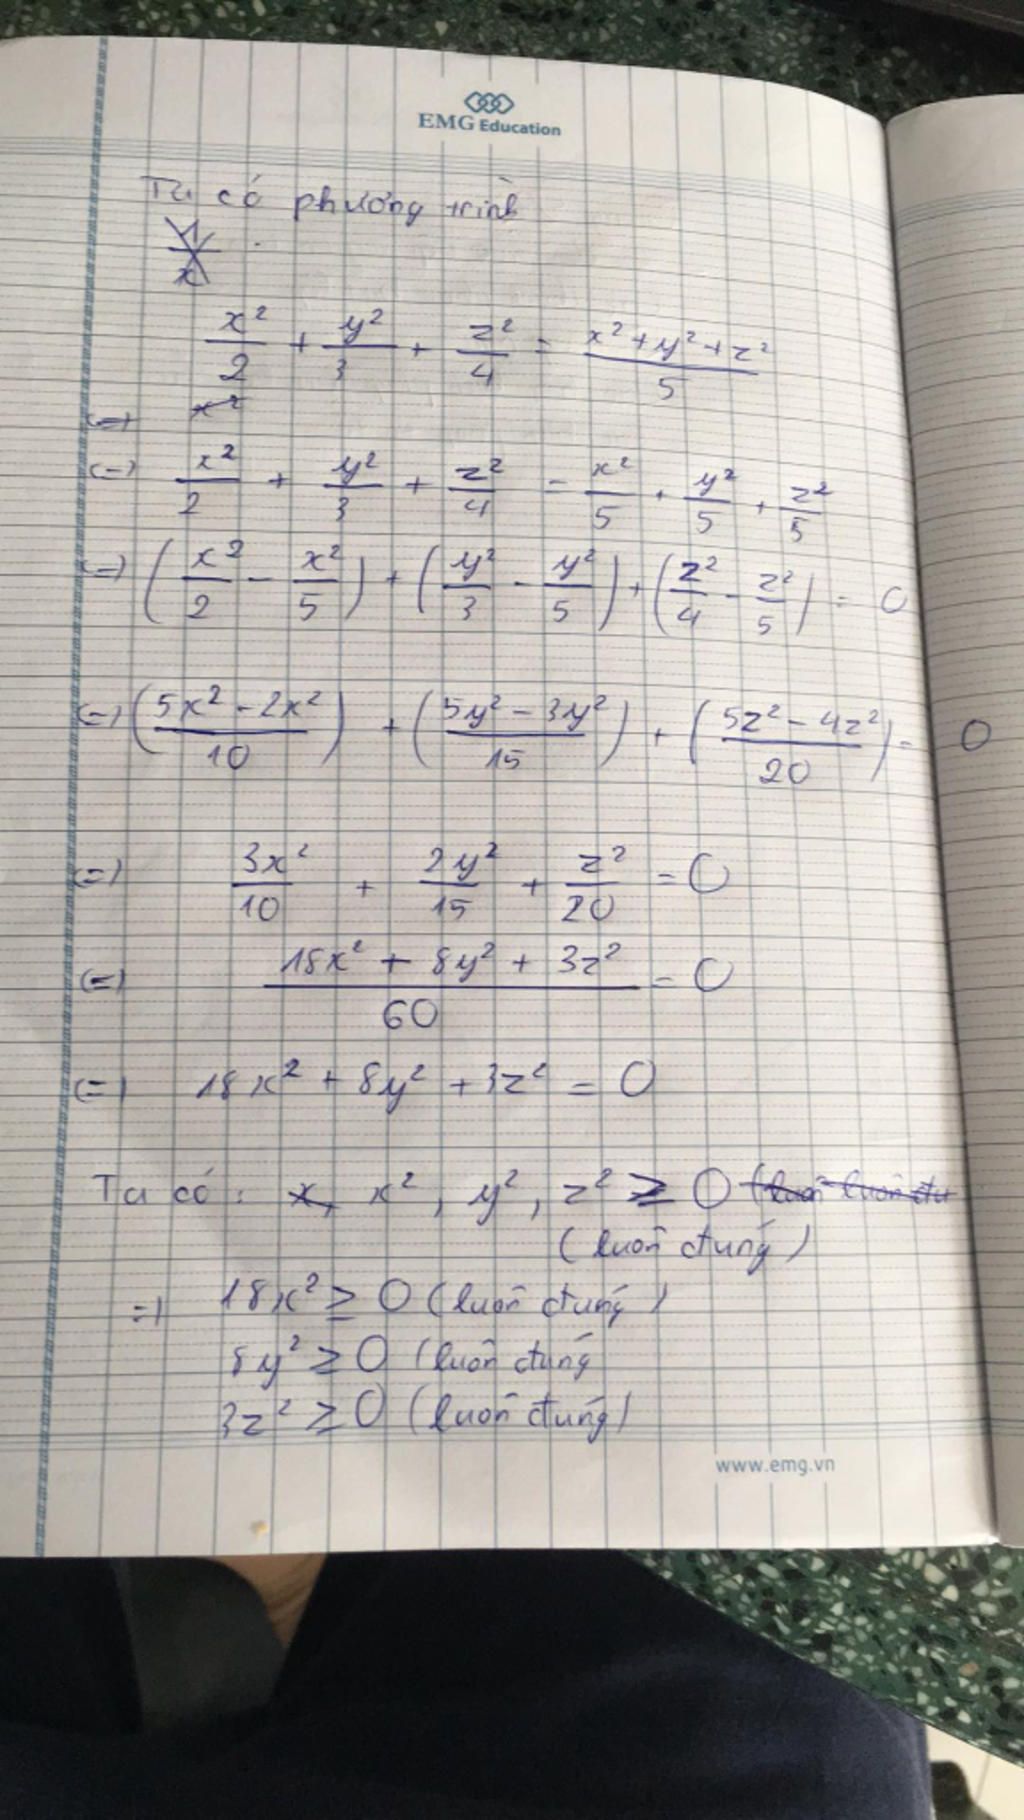 EMG Education
Ta có phương trình
x²/2 + y²/3 + z²/4 = (x² + y² + z²)/5
(=) x²/2 + y²/3 + z²/4 = x²/5 + y²/5 + z²/5
(=) (x²/2 - x²/5) + (y²/3 - y²/5) + (z²/4 - z²/5) = 0
(=) ((5x² - 2x²)/10) + ((5y² - 3y²)/15) + ((5z² - 4z²)/20) = 0
(=) 3x²/10 + 2y²/15 + z²/20 = 0
(=) (18x² + 8y² + 3z²)/60 = 0
(=) 18x² + 8y² + 3z² = 0
Ta có: x², y², z² ≥ 0
(luôn đúng)
=) 18x² ≥ 0 (luôn đúng)
8y² ≥ 0 (luôn đúng
3z² ≥ 0 (luôn đúng)
www.emg.vn